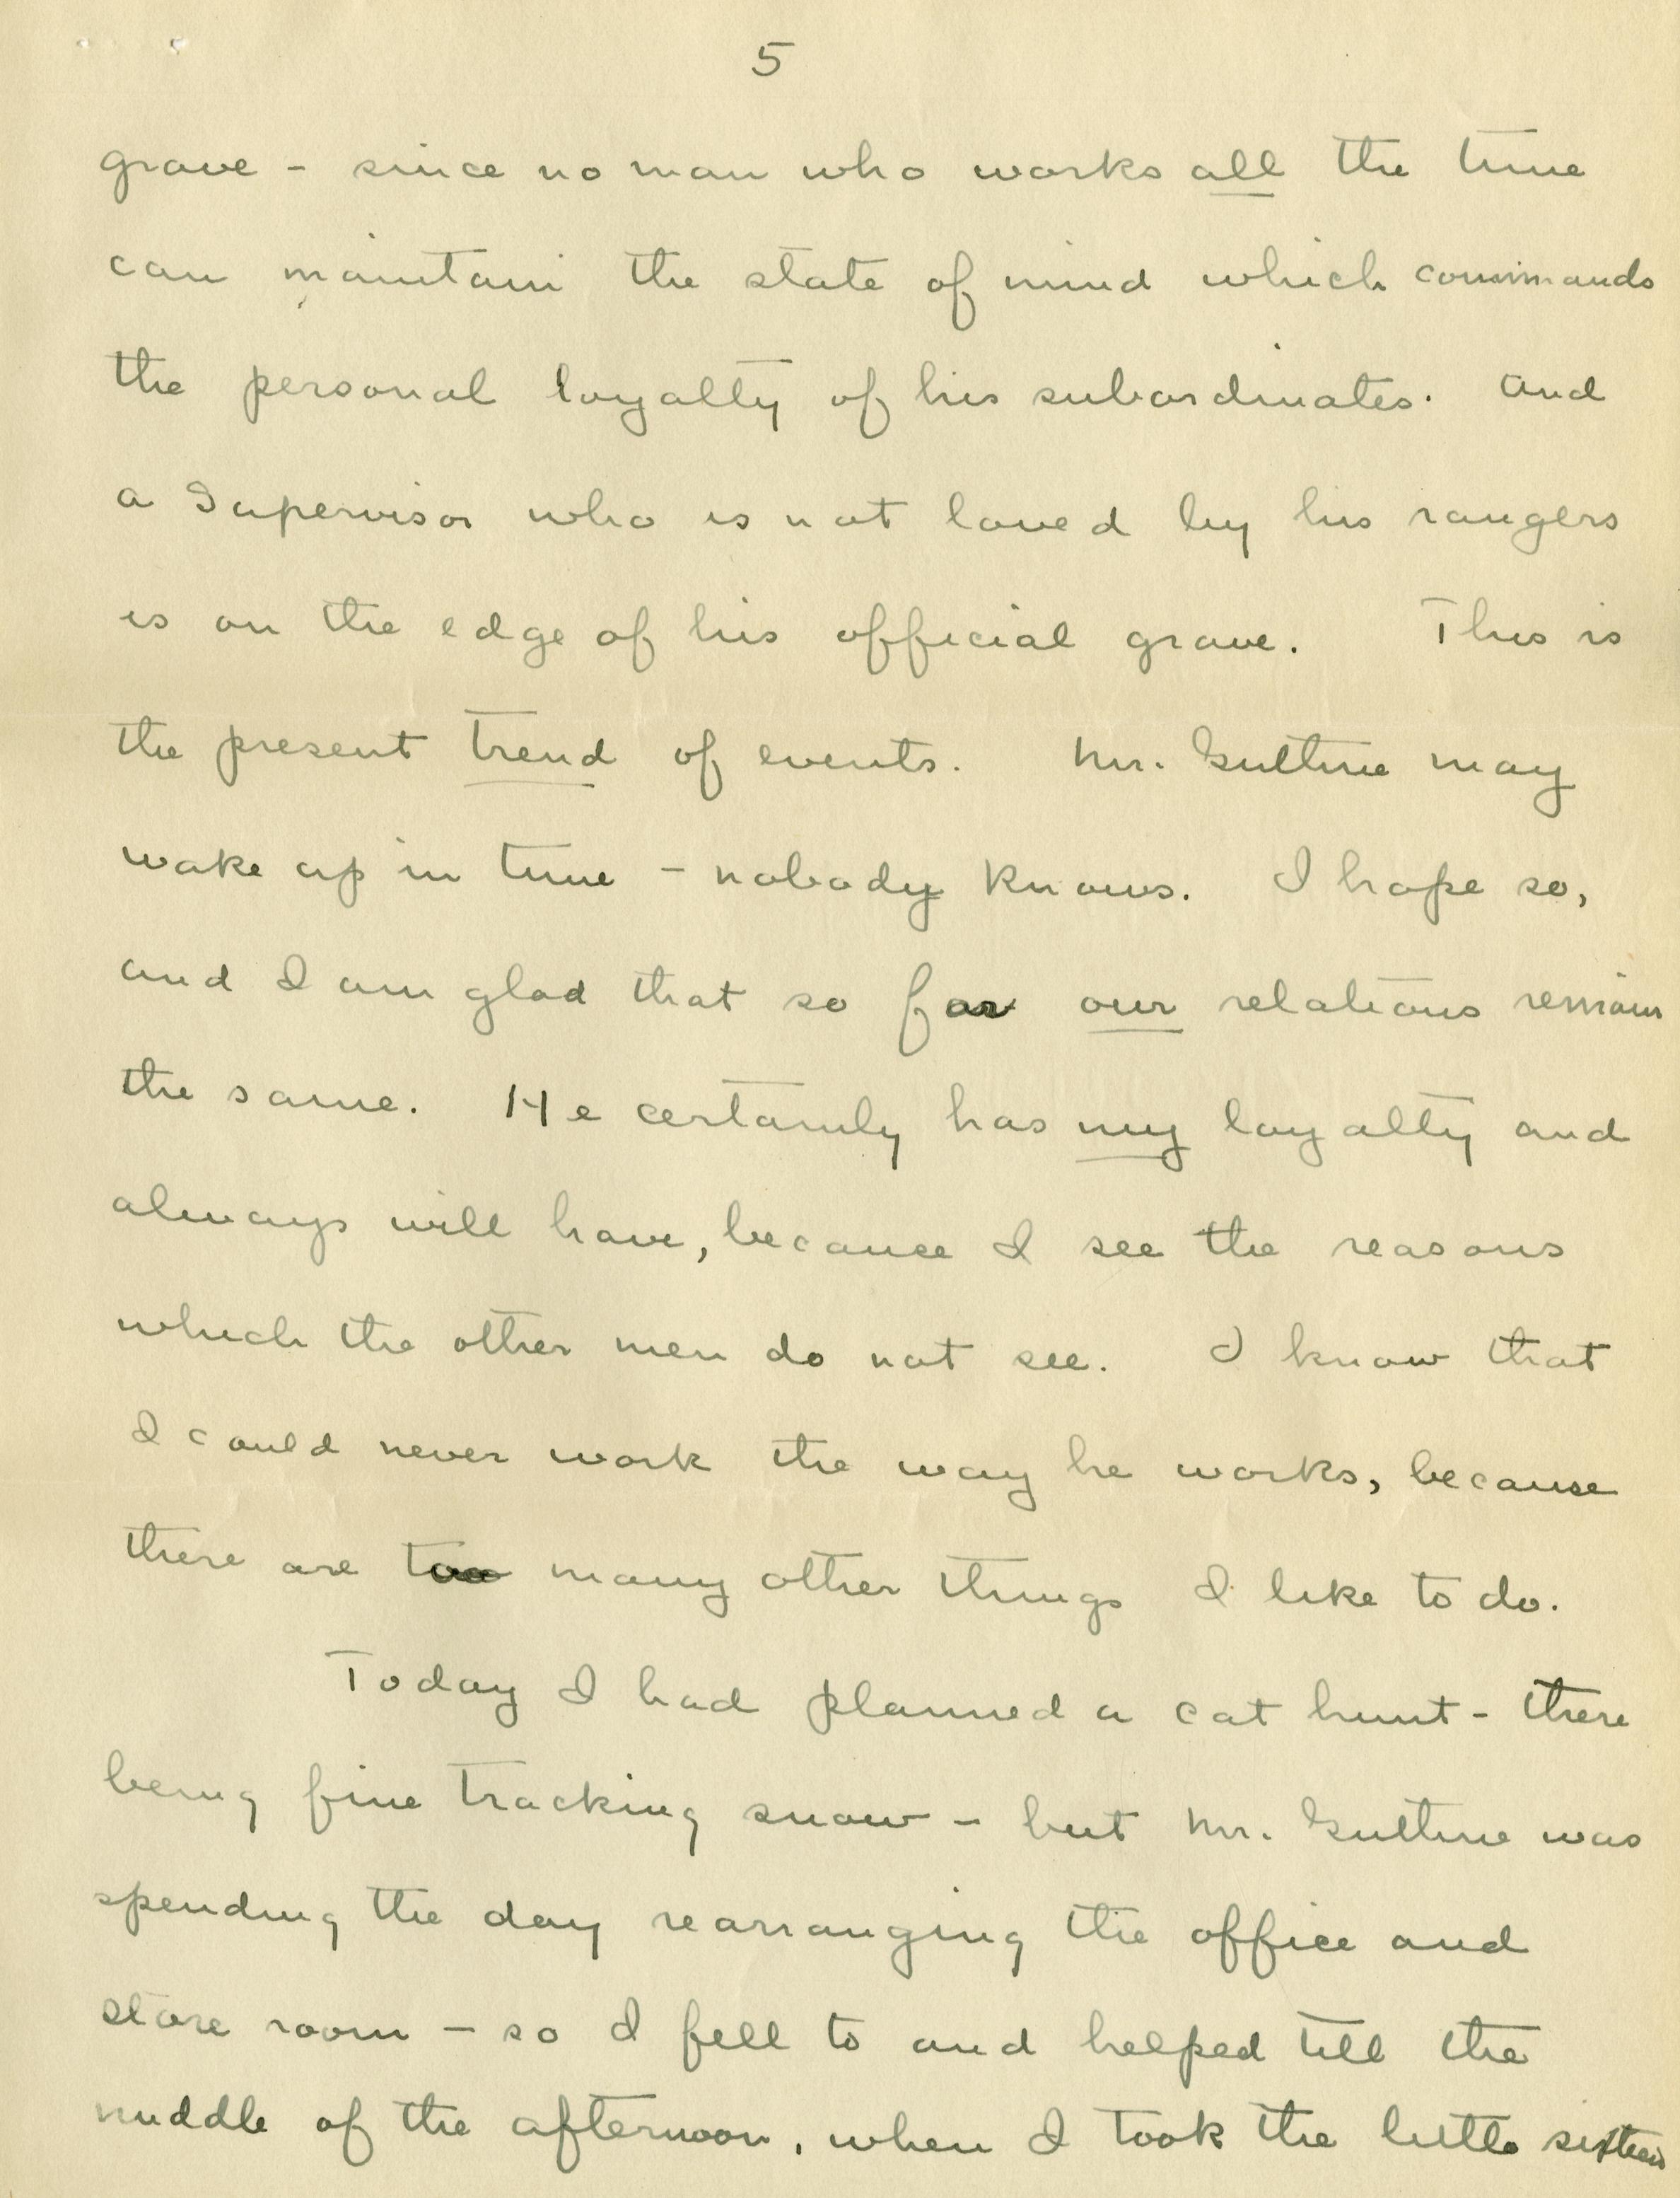 5
grave - since no man who works all the time
can maintain the state of mind which commands
the personal loyalty of his subordinates. And
a Supervisor who is not loved by his rangers
is on the edge of his official grave. This is
the present trend of events. Mr. Guthrie may
wake up in time - nobody knows. I hope so,
and I am glad that so far our relations remain
the same. He certainly has my loyalty and
always will have, because I see the reasons
which the other men do not see. I know that
I could never work the way he works, because
there are too many other things I like to do.
Today I had planned a cat hunt - there
being fine tracking snow - but Mr. Guthrie was
spending the day rearranging the office and
store room - so I fell to and helped till the
middle of the afternoon, when I took the little sixteen